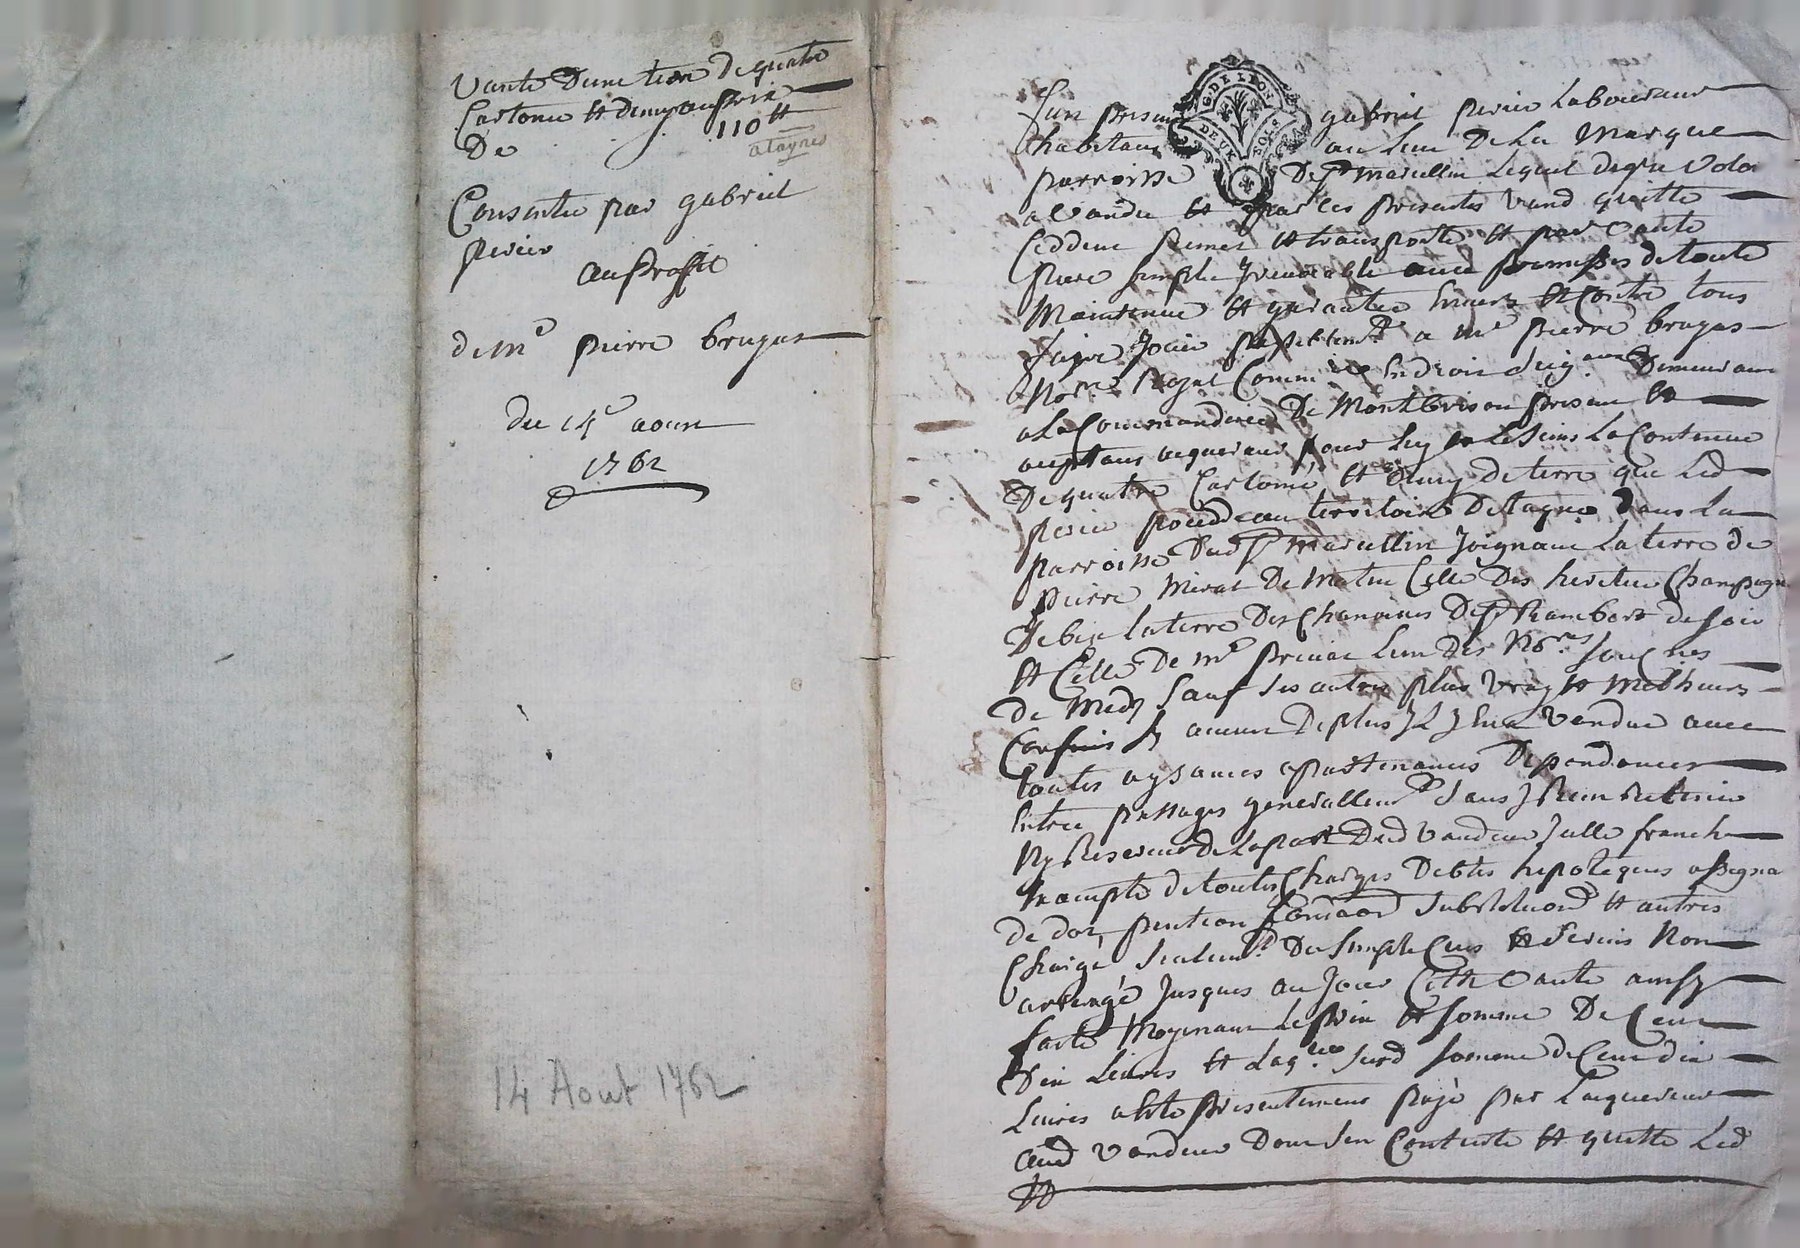 Vante d'une terre de quatre
Cartonné et demy au prix
De 110 tt
a taynes
Consentie par gabriel
perier
au proffit
de me pierre brugas
du 14e aoust
1762
14 Aout 1762
G. DE LYON
DEUX SOLS
fut présent gabriel perier laboureur
habitant au lieu de la marque
parroisse de st marcellin lequel de gré
a vandu et par ces presentes vand quitte
cedde remet et transporte et par vante
pure simple irrevocable avec promesses de toute
maintenue et garantie envers et contre tous
faire jouir a me pierre brugas
Nore Royal Commre en droit demeurant
a la Commanderie de Montbrison present et
aceptant aquereur pour luy et les siens la contenue
de quatre cartonné et demy de terre que led
perier possedde au territoire de tayne dans la
parroisse dud st marcellin joignant la terre de
pierre mirat de matin celle des heritiers Champagne
de bize la terre des chanoines de st Rambert de soir
et celle de me l'un des Nores
de sauf ses autres plus vray et meilheurs
confins sy aucuns de plus il y en a vandue avec
toutes aysances apartenances dependances
entrée passages generallemt sans y rien retenir
ny reserver de la part dud vandeur icelle franche
exempte de toutes charges debtes hipoteques
de dot, pention fondaon substituon et autres
charge seulemt du simple cens et servis non
arrengé jusques au jour cette vante ainsy
faite moyenant le prix et somme de cent
dix livres et laqlle surd somme de cent dix
livres a esté presentement payé par l'aquereur
aud vandeur dont s'en contente et quitte led